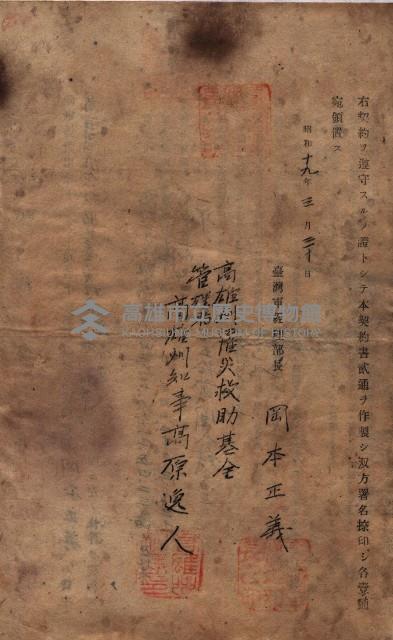 右契約ヲ遵守スルノ證トシテ本契約書貳通ヲ作製シ双方署名捺印シ各壹通
宛領置ス
昭和十九年三月三十日
臺灣軍經理部長 岡本正義
高雄州罹災救助基金
管理者
高雄州知事高原逸人
高雄市立歷史博物館
KAOHSIUNG MUSEUM OF HISTORY